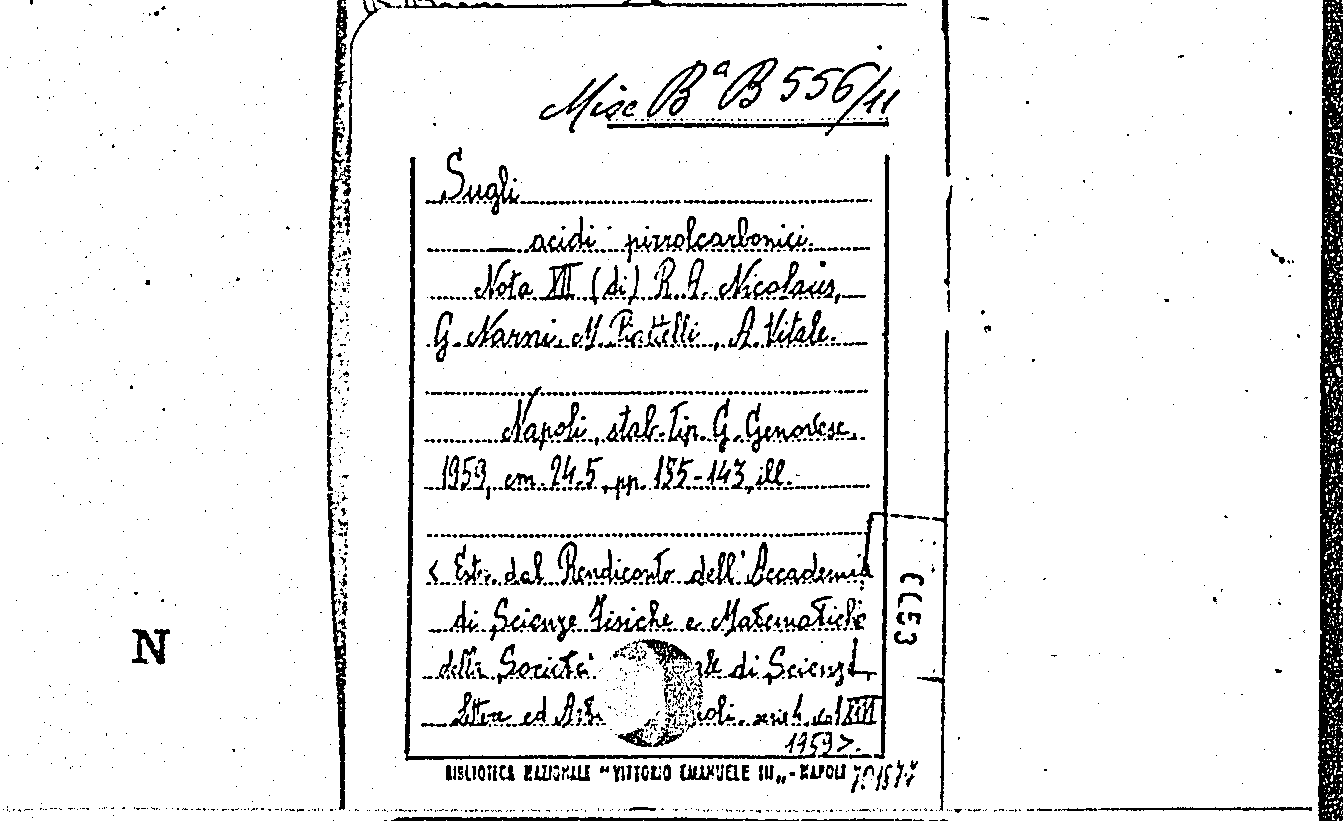 Misc Bª B 556/11
Sugli
acidi pirrolcarbonici.
Nota XII (di) R. A. Nicolaus,
G. Narni, M. Piattelli, A. Vitale.
Napoli, stab. Tip. G. Genovese,
1959, cm. 24.5, pp. 135-143, ill.
< Estr. dal Rendiconto dell'Accademia
di Scienze Fisiche e Matematiche
della Società di Scienze,
Lettere ed Arti serie 4, vol
1959>.
BIBLIOTECA NAZIONALE "VITTORIO EMANUELE III„ - NAPOLI
N